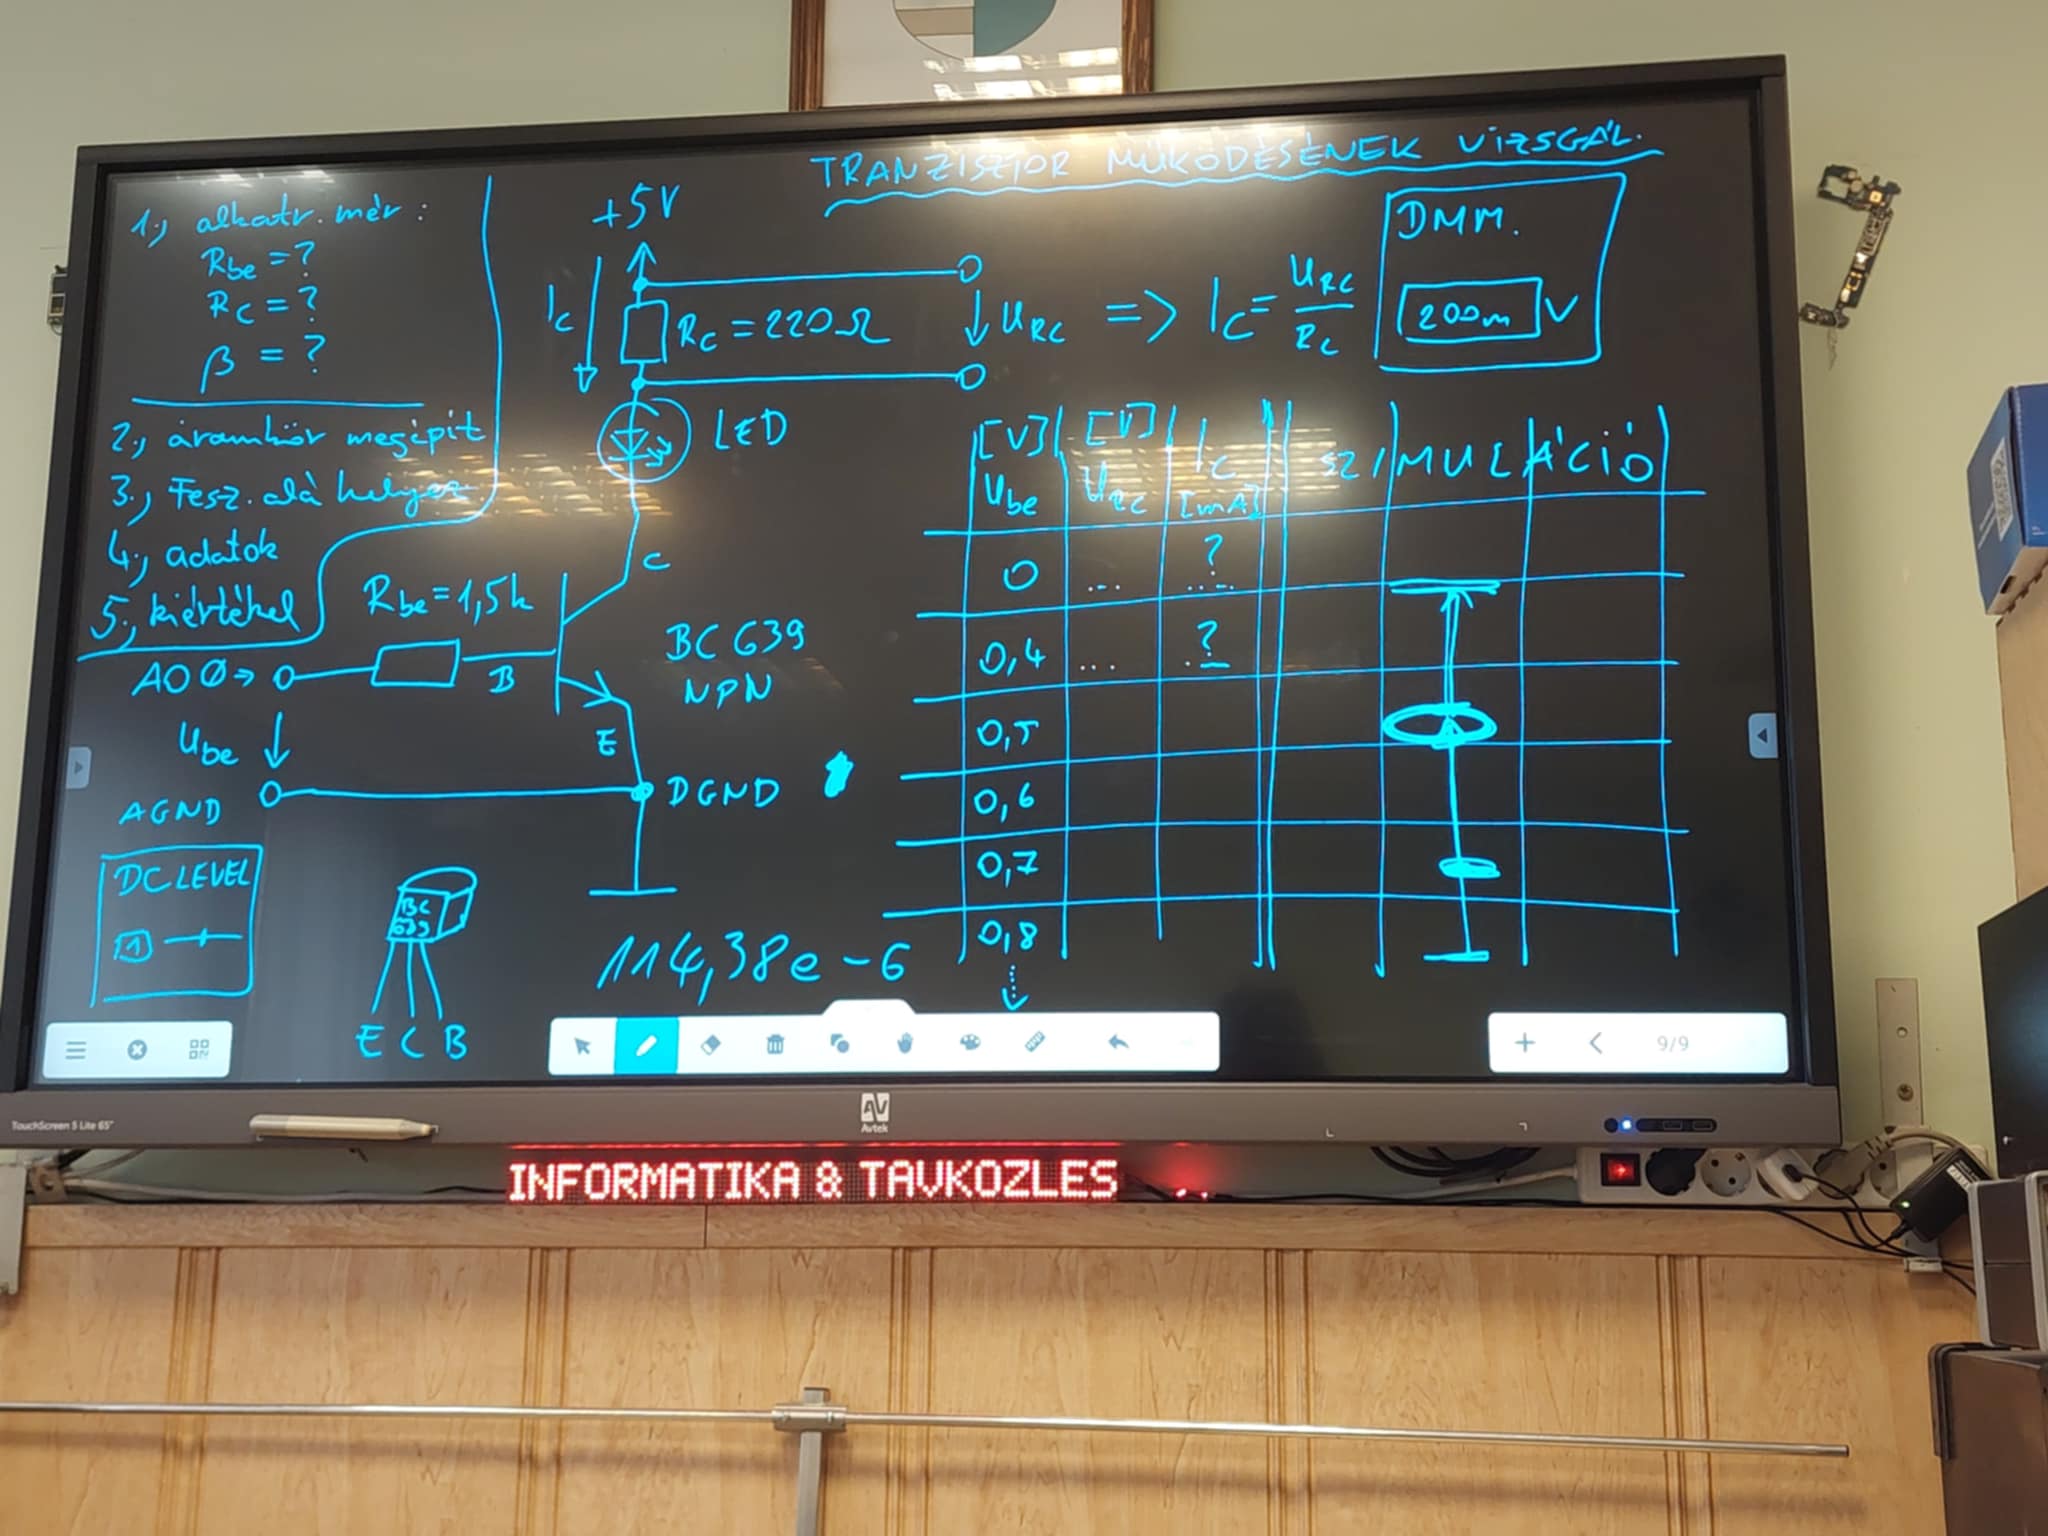 TRANZISZTOR MŰKÖDÉSÉNEK VIZSGÁL.
1., alkatr. mér:
Rbe = ?
RC = ?
β = ?
2., áramkör megépít
3., Fesz. alá helyez.
4., adatok
5., kiértékel
+5V
IC
RC = 220Ω
URC => IC = URC / RC
DMM.
200m V
LED
C
Rbe = 1,5k
A0 0→
B
E
BC 639
NPN
Ube
AGND
DGND
DC LEVEL
1
BC
639
E C B
114,38e-6
[V] [V] IC SZIMULÁCIÓ
Ube URC [mA]
0 ... ?
...
0,4 ... ?
0,5
0,6
0,7
0,8
9/9
TouchScreen 5 Lite 65"
AV
Avtek
INFORMATIKA & TAVKOZLES